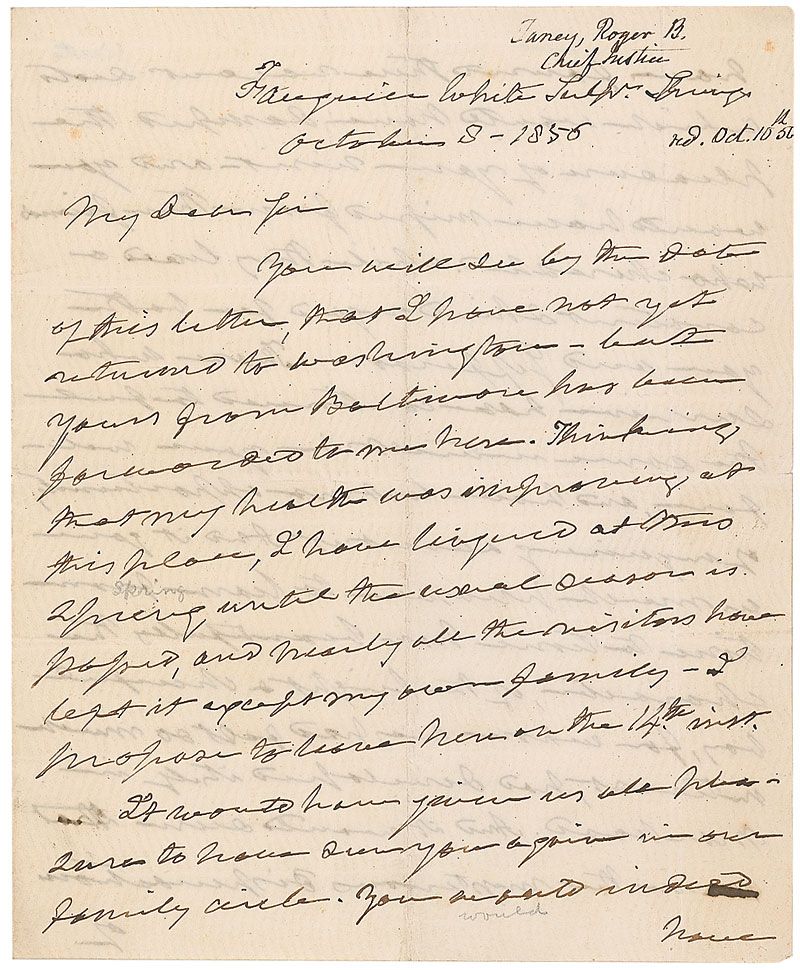 Taney, Roger B.
Chief Justice
Fauquier White Sulpr. Springs
October 8 - 1856
red. Oct. 10th 56
My Dear Sir
You will see by the date
of this letter, that I have not yet
returned to Washington - but
yours from Baltimore has been
forwarded to me here. Thinking
that my health was improving at
this place, I have lingered at this
Spring until the usual season is
spring
passed, and nearly all the visitors have
left it except my own family - I
propose to leave here on the 14th inst.
It would have given us all plea-
sure to have seen you again in our
family circle. You would indeed
would
have